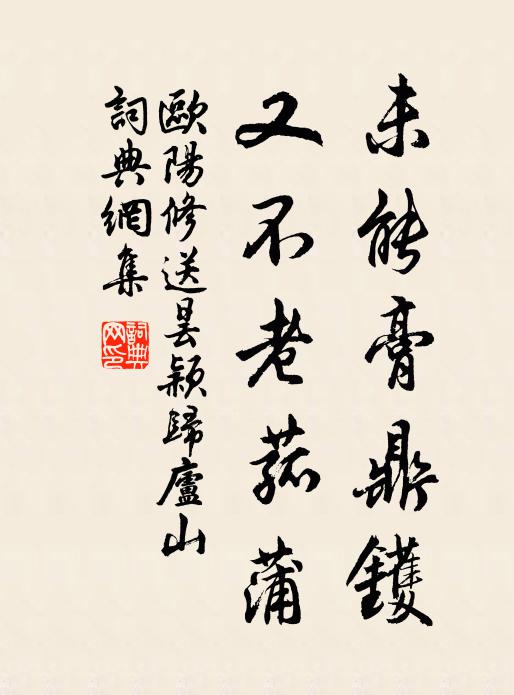 未能膏鼎鑊
又不老菰蒲
歐陽修送曇穎歸廬山
詞典網集
詞典网印